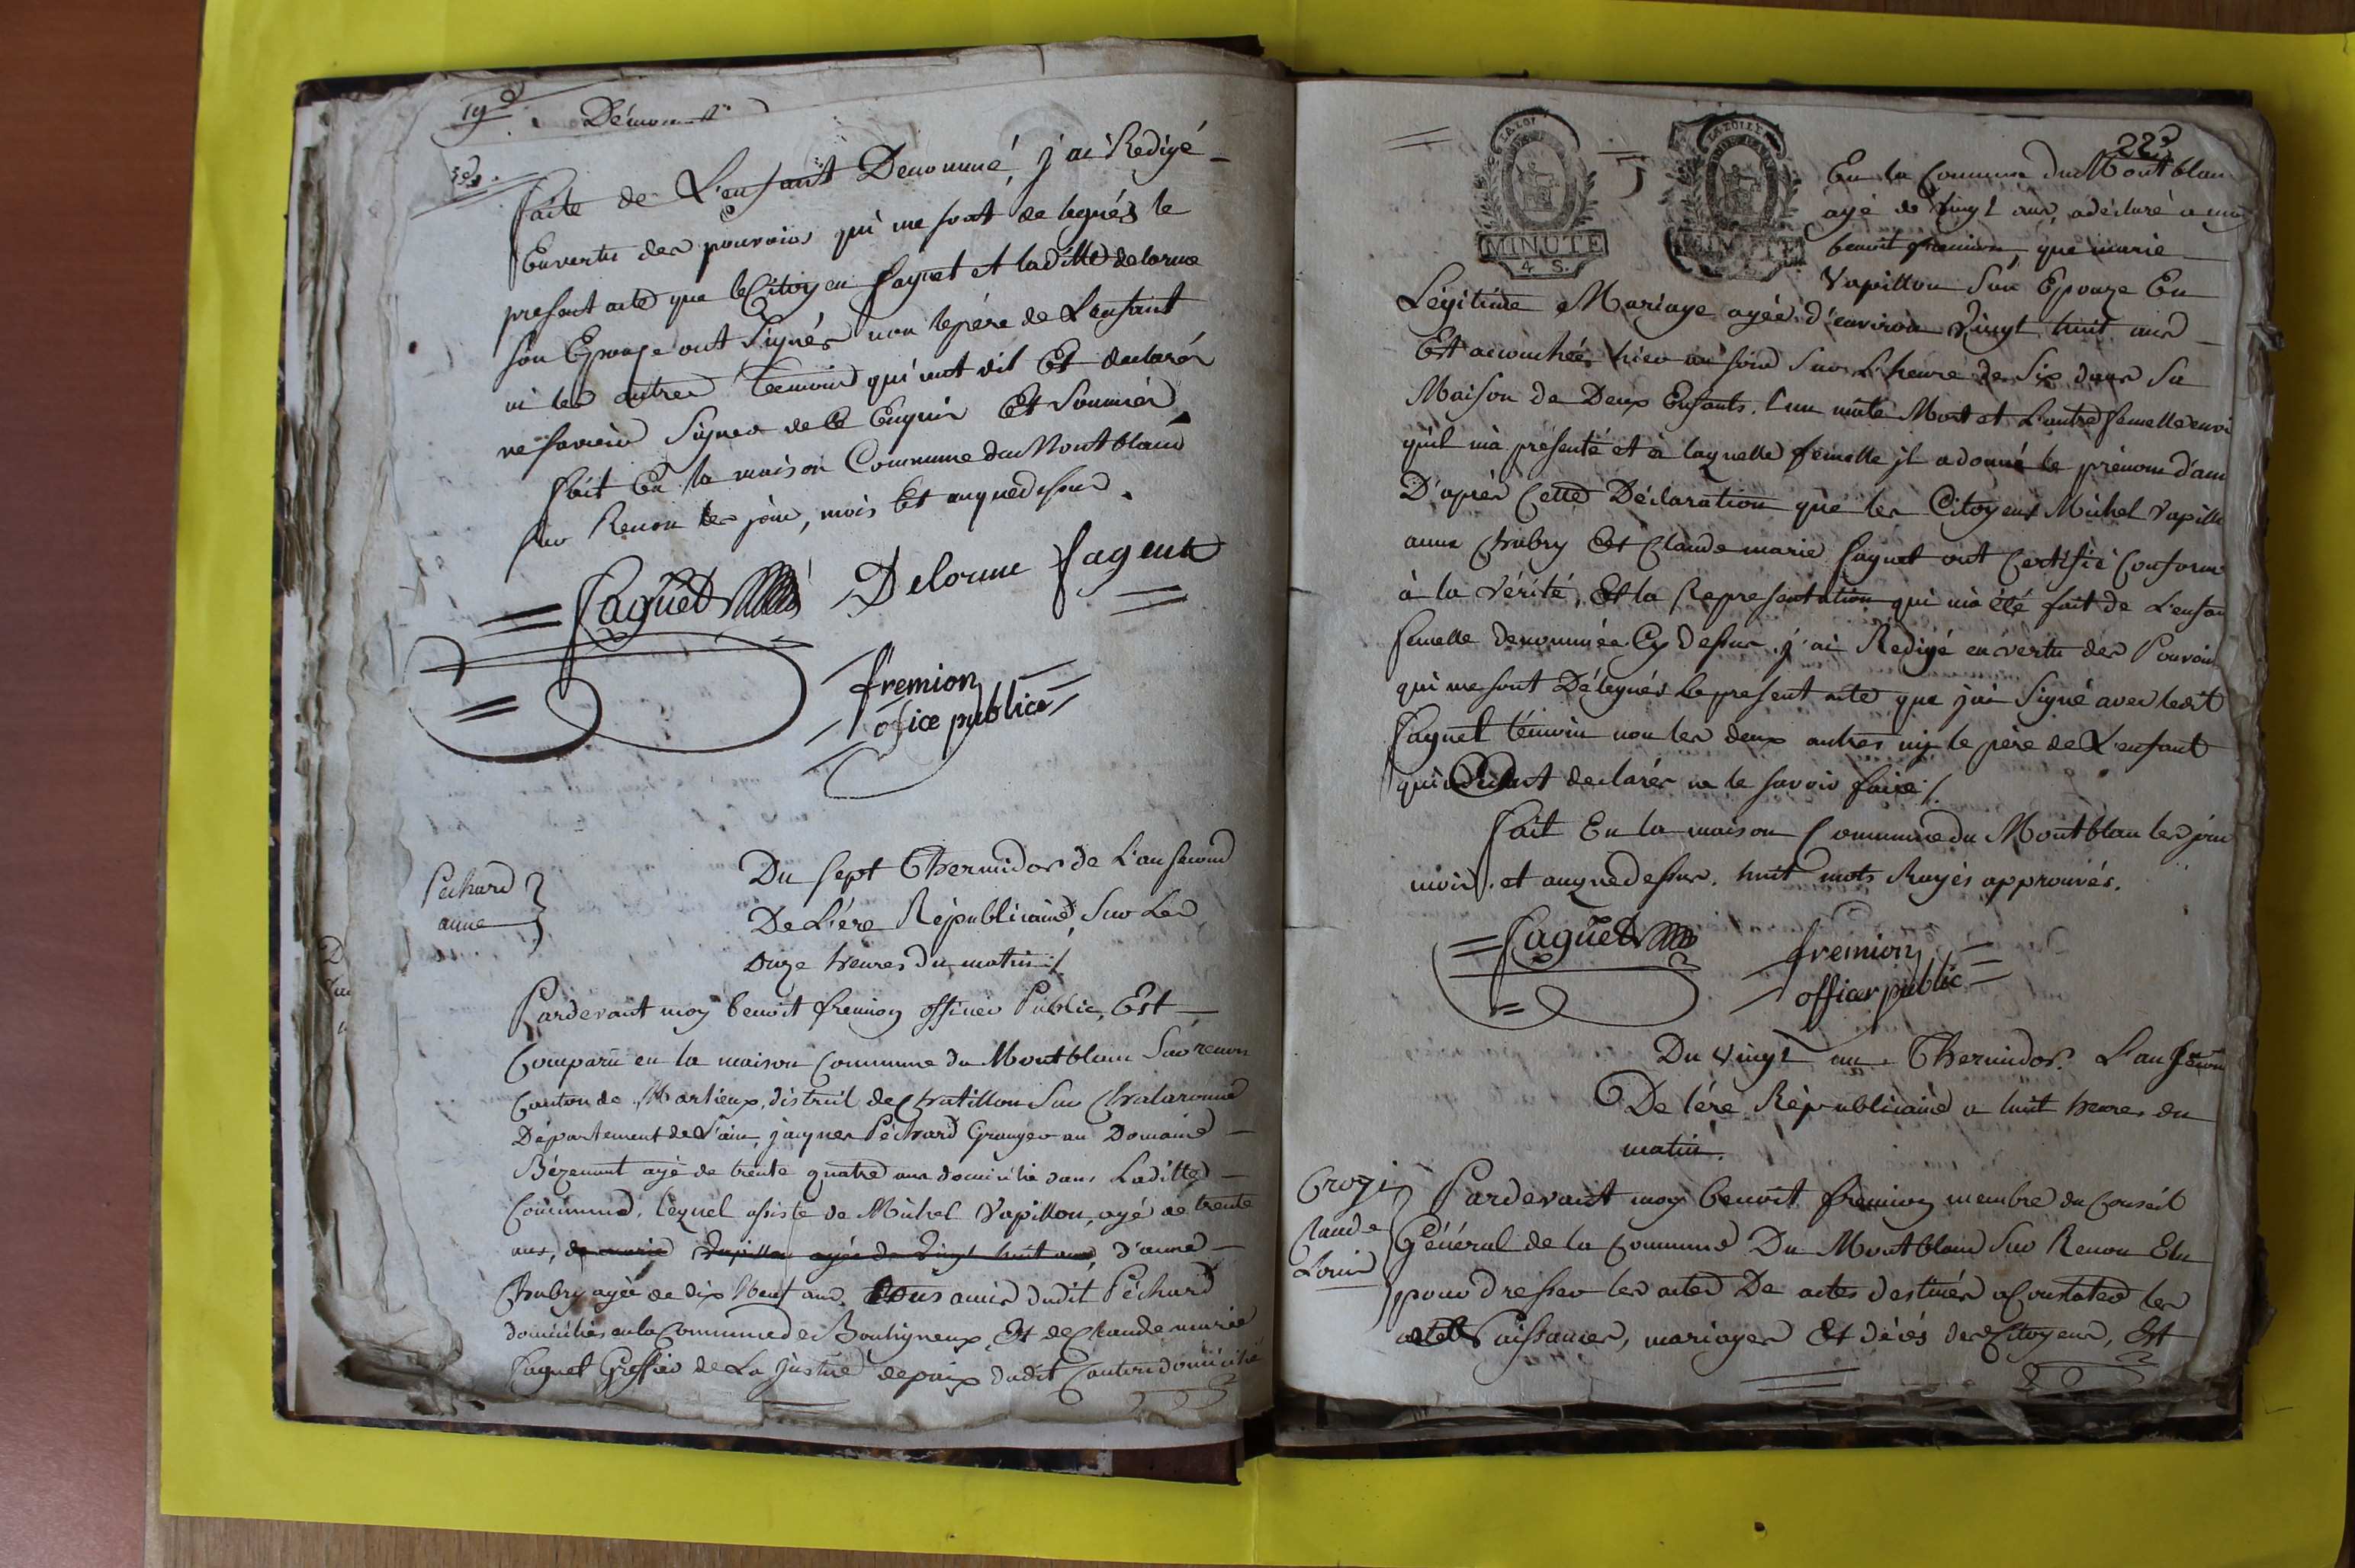 19e
faite de L'enfant Denommé, j'ai Redigé
Envertu des pouvoirs qui me sont delegués le
present acte que le Citoyen faguet et laditte delorme
son Epouse ont Signés non le père de L'enfant
ni les autres temoins qui ont dit Et declarés
ne savoir Signer de ce Enquis Et Sommés
fait En la maison Commune du Montblanc
sur Renon les jour, mois Et anquedessus.
faguet Delorme fagent
fremion
ofice publice
Péchard
anne
Du sept Thermidor de L'an second
De L'ére Républicaine, sur Les
onze heures du matin /.
Pardevant moy benoit fremion officier Public, Est
Comparu en la maison Commune du Montblanc Sur renon
Canton de Marlieux, district de Chatillon Sur Chalaronne
Département de L'ain, jacques Péchard Granger au Domaine
Bézemont agé de trente quatre ans domicilié dans Laditte
Commune, lequel assisté de Michel Vapillon, agé de trente
ans, de marie Vapillon agée de vingt huit ans, d'anne
Chabry agée de dix Neuf ans, tous amis dudit Péchard
domiciliés en la Commune de Bouligneux, Et de Claude marie
faguet Greffier de La justice de paix dudit Canton domicilié
LA LOI
MINUTE
4 S.
223
En la Commune du Montblan
agé de vingt ans, a déclaré a moy
benoit fremion, que marie
Vapillon Son Epouze En
Légitime Mariage agée d'environ vingt huit ans
Est acouchée hier au soir Sur L'heure de Six dans Sa
Maison de Deux Enfants, l'un mâle Mort et L'autre femelle envi
quil m'a présenté et à laquelle femelle jl a donné le prénom d'ann
D'après Cette Déclaration que les Citoyens Michel Vapillo
anne Chabry Et Claude marie faguet ont Certifié Conforme
à la vérité, Et la Representation qui m'a été fait de L'enfan
femelle denommée Cy Dessus, j'ai Rédigé en vertu des Pouvoirs
qui me sont Délégués le present acte que j'ai Signé avec ledit
faguet témoin non les deux autres ny le père de L'enfant
qui ont declarés ne le savoir faire /.
fait En la maison Commune du Montblan les jour
mois, et anquedessus. huit mots Rayés approuvés.
faguet fremion
officer public
Du vingt un Thermidor L'an secon
De l'ére Républicaine a huit heures du
matin.
Crozi
Claude
Louis
Pardevant moy benoit fremion membre du Conseil
Général de la Commune Du Montblanc Sur Renon Elu
pour dresser les actes De actes destinés a Constater les
Naissances, mariages Et décés des Citoyens, Est